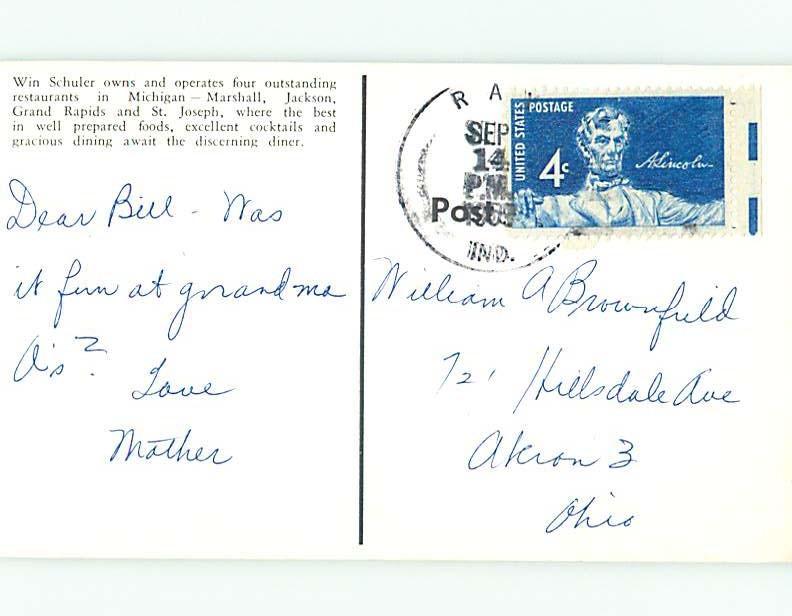 Win Schuler owns and operates four outstanding
restaurants in Michigan — Marshall, Jackson,
Grand Rapids and St. Joseph, where the best
in well prepared foods, excellent cocktails and
gracious dining await the discerning diner.
Dear Bill - Was
it fun at grandma
A's?
Love
Mother
R A
SEP
14
PM
IND.
Post
UNITED STATES POSTAGE
4c
A. Lincoln
William A Brownfield
721 Hillsdale Ave
Akron 3
Ohio